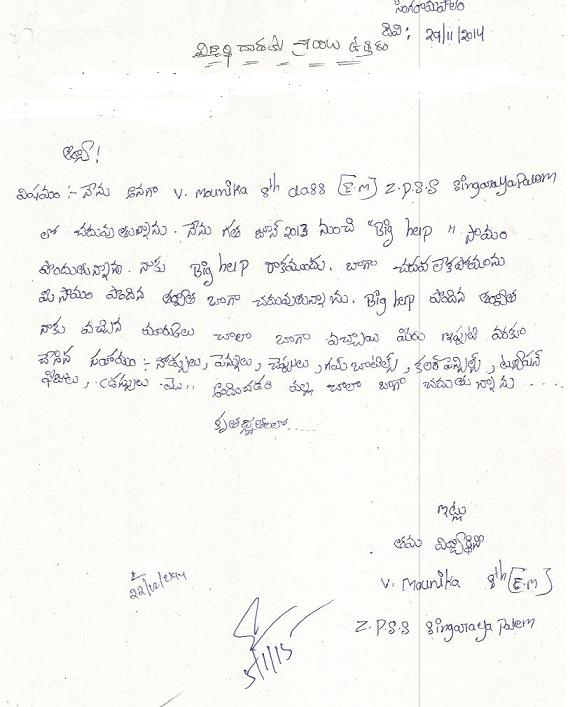 సింగరాయపాలెం
తేది: 29/11/2014
విద్యార్థి దాతకు వ్రాయు ఉత్తరం
ఆర్యా!
విషయం :- నేను అనగా V. Mounika 8th class [E.M] Z.P.S.S SingarayaPalem
లో చదువుతున్నాను. నేను గత జూన్ 2013 నుంచి "Big help" సాయం
పొందుతున్నాను. నాకు Big help రాకముందు. బాగా చదవ లేకపోయాను
మీ సాయం పొందిన తర్వాత బాగా చదువుతున్నాను. Big help పొందిన తర్వాత
నాకు వచ్చిన మార్కులు చాలా బాగా వచ్చాయి మీరు ఇప్పటి వరకు
చేసిన సహాయం :- నోట్సులు, పెన్నులు, చెప్పులు, గమ్ బాటిల్స్, కలర్ పెన్సిల్స్, ట్యూషన్
ఫీజులు, డ్రస్సులు మొ,, అందించడం వల్ల చాలా బాగా చదువుతున్నాను ....
కృతజ్ఞతలతో.....
ఇట్లు
తమ విద్యార్థిని
V. Mounika 8th [E.M]
Z.P.S.S Singaraya Palem
22/12/2014
5/1/15